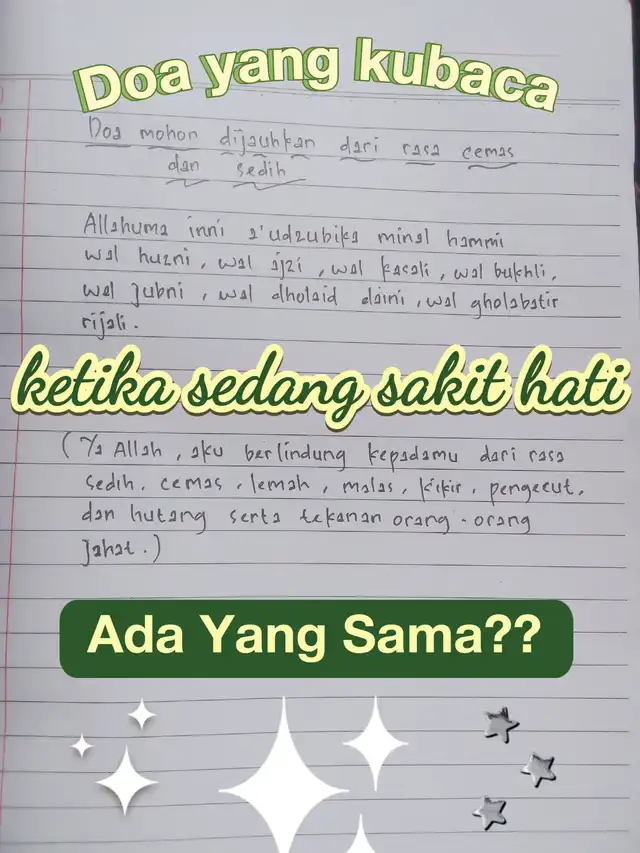 Doa yang kubaca
Doa mohon dijauhkan dari rasa cemas
dan sedih
Allahuma inni a'udzubika minal hammi
wal huzni, wal ajzi, wal kasali, wal bukhli,
wal jubni, wal dholaid daini, wal gholabatir
rijali.
ketika sedang sakit hati
(Ya Allah, aku berlindung kepadamu dari rasa
sedih. cemas, lemah, malas, kikir, pengecut,
dan hutang serta tekanan orang-orang
jahat.)
Ada Yang Sama??